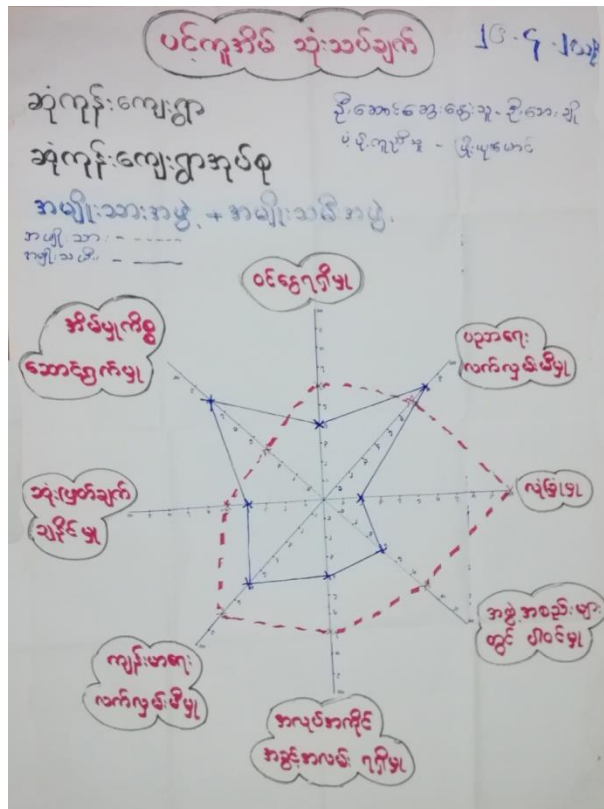 ပင့်ကူအိမ် သုံးသပ်ချက်
ဆုံကုန်းကျေးရွာ
ဆုံကုန်းကျေးရွာအုပ်စု
အမျိုးသားအဖွဲ့ + အမျိုးသမီးအဖွဲ့
အမျိုးသား - - - - - -
အမျိုးသမီး - ———
ဝင်ငွေရရှိမှု
ပညာရေး
လက်လှမ်းမီမှု
လုံခြုံမှု
အဖွဲ့အစည်းများ
တွင် ပါဝင်မှု
အလုပ်အကိုင်
အခွင့်အလမ်း ရရှိမှု
ကျန်းမာရေး
လက်လှမ်းမီမှု
ဆုံးဖြတ်ချက်
ချနိုင်မှု
အိမ်မှုကိစ္စ
ဆောင်ရွက်မှု